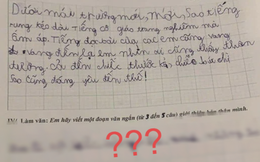 Dưới mái trường mới, mới, sao tiếng
rung kéo dài tiếng cô giáo trang nghiêm mà
ấm áp. Tiếng đọc bài của các em cũng vang
đến lạ em nhìn ai cũng thấy thân
thương. Cả đến chiếc thước kẻ, chiếc bút chì
sao cũng đáng yêu đến thế!
IV/ Làm văn: Em hãy viết một đoạn văn ngắn (từ 3 đến 5 câu) giới thiệu bản thân mình.
???